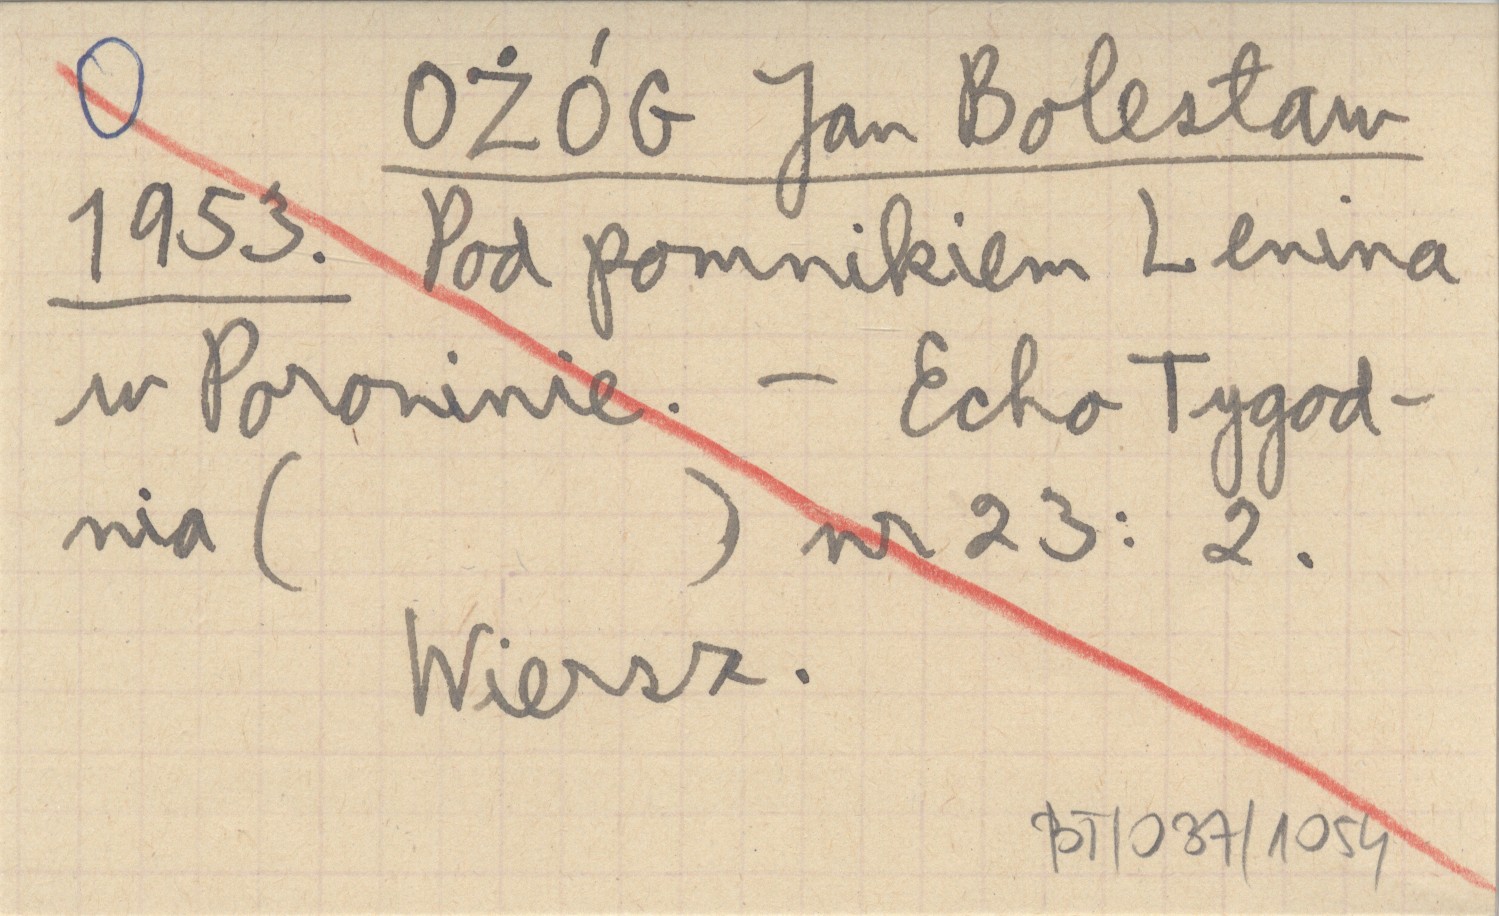 OŻÓG Jan Bolesław
1953. Pod pomnikiem Lenina
w Poroninie. – Echo Tygod-
nia ( ) nr 23: 2.
Wiersz.
BT/037/1054